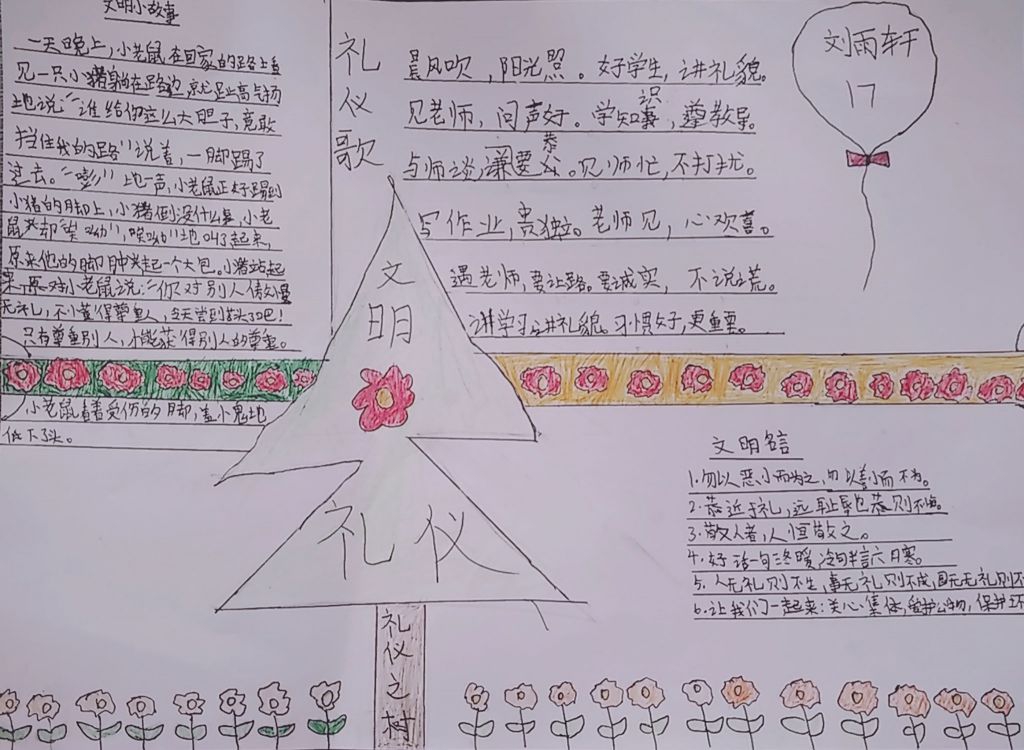 文明小故事
一天晚上，小老鼠在回家的路上看
见一只小猪躺在路边，就趾高气扬
地说："谁给你这么大胆子，竟敢
挡住我的路"说着，一脚踢了
过去。"嘭"地一声，小老鼠正好踢到
小猪的脚上，小猪倒没什么事，小老
鼠却"唉呦"，"唉呦"地叫了起来，
原来他的脚肿起一个大包。小猪站起
来，对小老鼠说："你对别人傲慢
无礼，不懂得尊重人，今天尝到苦头了吧！
只有尊重别人，才能获得别人的尊重。
小老鼠看着受伤的脚，羞愧地
低下了头。
礼仪歌
晨风吹，阳光照。好学生，讲礼貌。
见老师，问声好。学知识，尊教导。
与师谈，谦要恭。见师忙，不打扰。
写作业，贵独立。老师见，心欢喜。
遇老师，要让路。要诚实，不说谎。
讲学习，讲礼貌。习惯好，更重要。
刘雨轩
17
文明
礼仪
礼仪之树
文明名言
1.勿以恶小而为之，勿以善小而不为。
2.恭近于礼，远耻辱也
3.敬人者，人恒敬之。
4.好话一句三冬暖，冷句半言六月寒。
5.人无礼则不生，事无礼则不成，国无礼则不
6.让我们一起来：关心集体，爱护公物，保护环